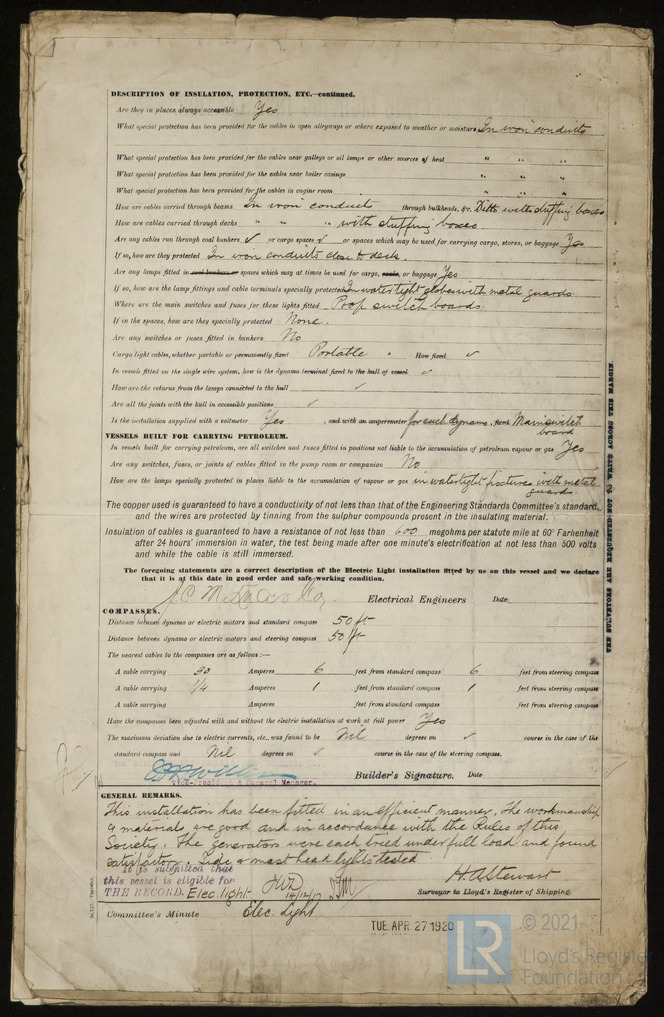 DESCRIPTION OF INSULATION, PROTECTION, ETC.—continued.
Are they in places always accessible Yes
What special protection has been provided for the cables in open alleyways or where exposed to weather or moisture In iron conduits
What special protection has been provided for the cables near galleys or oil lamps or other sources of heat " " "
What special protection has been provided for the cables near boiler casings " " "
What special protection has been provided for the cables in engine room " " "
How are cables carried through beams In iron conduits through bulkheads, &c. Ditto with stuffing boxes
How are cables carried through decks " " " with stuffing boxes
Are any cables run through coal bunkers ✓ or cargo spaces ✓ or spaces which may be used for carrying cargo, stores, or baggage Yes
If so, how are they protected In iron conduits close to deck.
Are any lamps fitted in coal bunkers or spaces which may at times be used for cargo, coals, or baggage Yes
If so, how are the lamp fittings and cable terminals specially protected In watertight globes with metal guards
Where are the main switches and fuses for these lights fitted Poop switch boards
If in the spaces, how are they specially protected None.
Are any switches or fuses fitted in bunkers No
Cargo light cables, whether portable or permanently fixed Portable. How fixed ✓
In vessels fitted on the single wire system, how is the dynamo terminal fixed to the hull of vessel ✓
How are the returns from the lamps connected to the hull ✓
Are all the joints with the hull in accessible positions ✓
Is the installation supplied with a voltmeter Yes, and with an amperemeter for each dynamo, fixed Main switch
board
VESSELS BUILT FOR CARRYING PETROLEUM.
In vessels built for carrying petroleum, are all switches and fuses fitted in positions not liable to the accumulation of petroleum vapour or gas Yes
Are any switches, fuses, or joints of cables fitted in the pump room or companion No
How are the lamps specially protected in places liable to the accumulation of vapour or gas in watertight fixtures with metal
guards
The copper used is guaranteed to have a conductivity of not less than that of the Engineering Standards Committee's standard,
and the wires are protected by tinning from the sulphur compounds present in the insulating material.
Insulation of cables is guaranteed to have a resistance of not less than 600 megohms per statute mile at 60° Farhenheit
after 24 hours' immersion in water, the test being made after one minute's electrification at not less than 500 volts
and while the cable is still immersed.
The foregoing statements are a correct description of the Electric Light installation fitted by us on this vessel and we declare
that it is at this date in good order and safe working condition.
Electrical Engineers Date
COMPASSES.
Distance between dynamo or electric motors and standard compass 50 ft
Distance between dynamo or electric motors and steering compass 50 ft
The nearest cables to the compasses are as follows:—
A cable carrying 30 Amperes 6 feet from standard compass 6 feet from steering compass
A cable carrying 1/4 Amperes 1 feet from standard compass 1 feet from steering compass
A cable carrying Amperes feet from standard compass feet from steering compass
Have the compasses been adjusted with and without the electric installation at work at full power Yes
The maximum deviation due to electric currents, etc., was found to be Nil degrees on ✓ course in the case of the
standard compass and Nil degrees on ✓ course in the case of the steering compass.
Vice-President & General Manager. Builder's Signature. Date
GENERAL REMARKS.
This installation has been fitted in an efficient manner, the workmanship
& materials are good and in accordance with the Rules of this
Society. The generators were each tried under full load and found
satisfactory. Side & mast head lights tested
It is submitted that
this vessel is eligible for
THE RECORD. Elec. light.
H A Stewart
Surveyor to Lloyd's Register of Shipping.
Committee's Minute Elec. Light
TUE. APR. 27 1920
THE SURVEYORS ARE REQUESTED NOT TO WRITE ACROSS THIS MARGIN.
LR © 2021
Lloyd's Register
Foundation